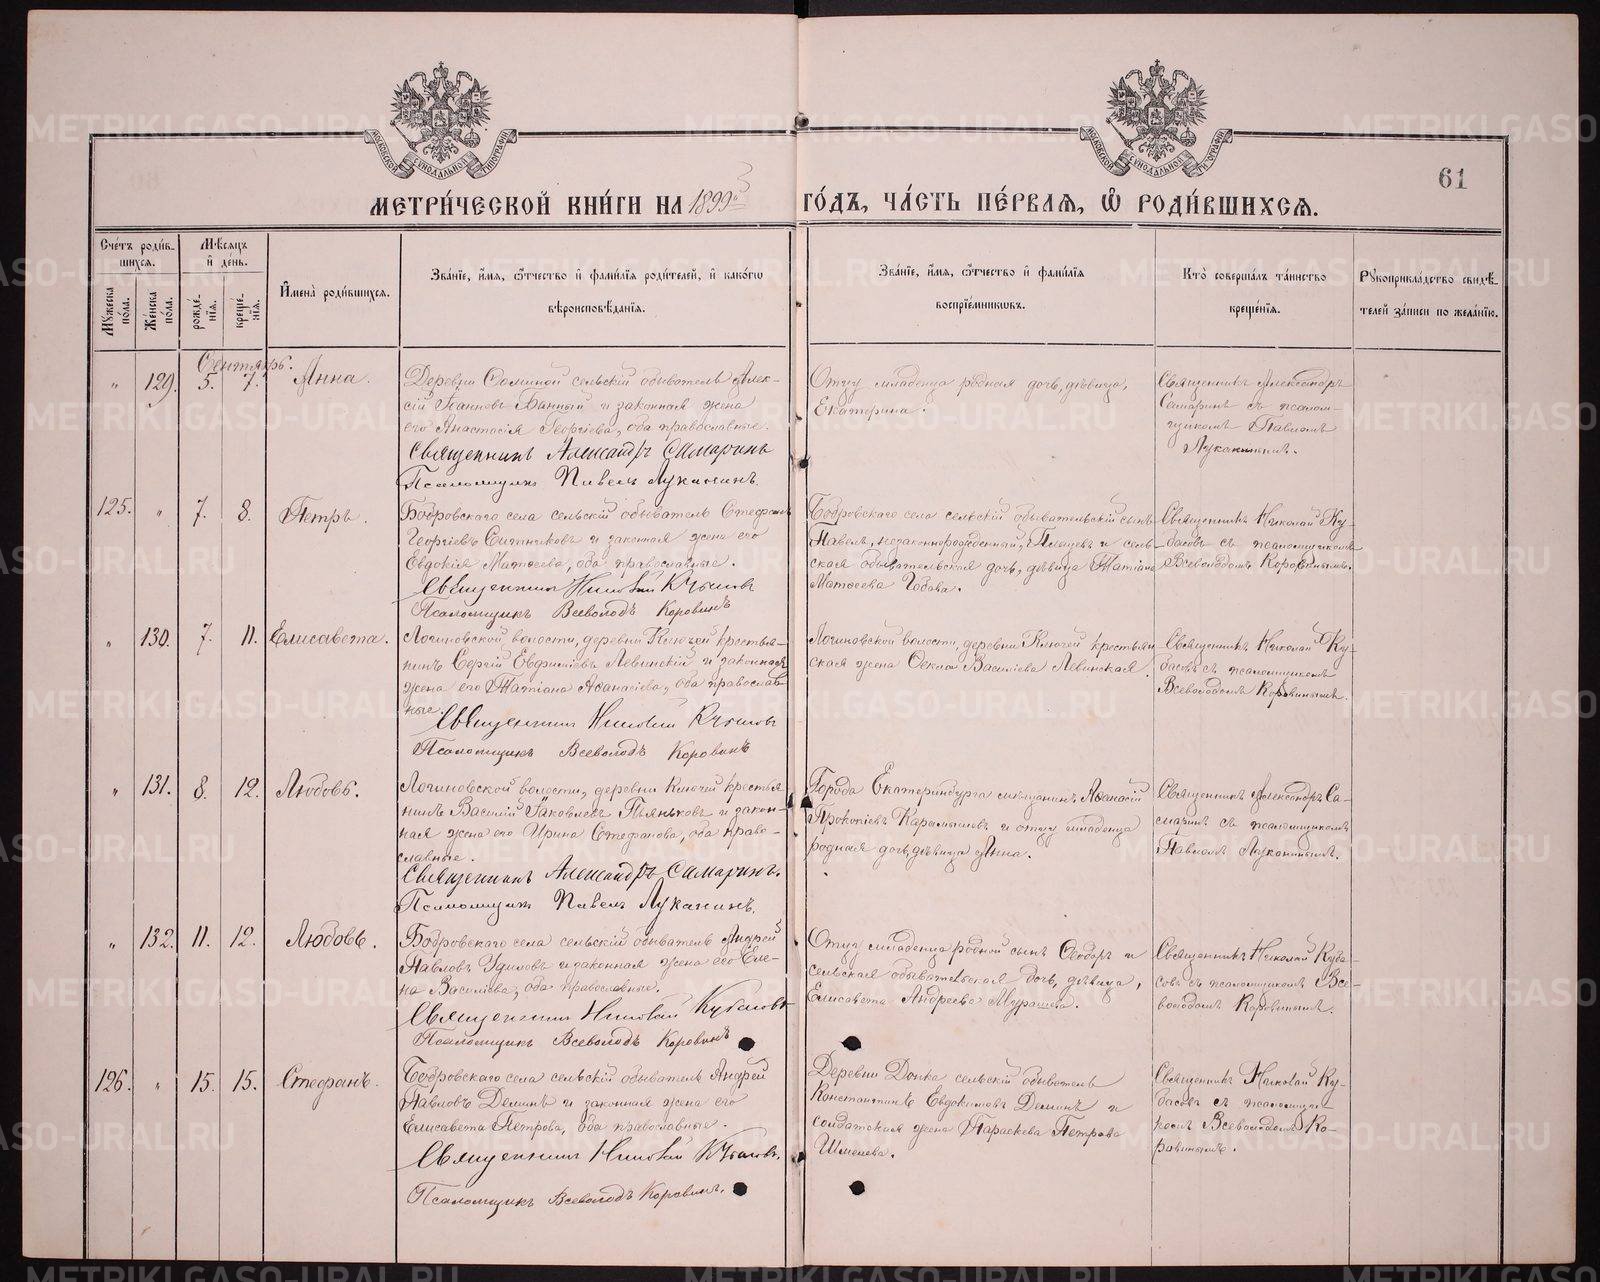 61
МЕТРИ́ЧЕСКОЙ КНИ́ГИ НА 1899й ГО́ДЪ, ЧА́СТЬ ПЕ́РВАЯ, Ѽ РОДИ́ВШИХСЯ.
Сче́тъ роди́в-
шихся.
Мꙋ́жеска по́ла.
Же́нска по́ла.
Мѣ́сяцъ и де́нь.
рожде́-
нїя.
креще́-
нїя.
И҆мена̀ роди́вшихся.
Зва́нїе, и҆́мя, ѻ҆́тчество и҆ фами́лїя роди́телей, и҆ како́гѡ
вѣроисповѣ́данїя.
Зва́нїе, и҆́мя, ѻ҆́тчество и҆ фами́лїя
воспрїе́мникѡвъ.
Кто̀ соверша́лъ та́инство
креще́нїя.
Рꙋкоприкла́дство свидѣ́-
телей за́писи по жела́нїю.
Сентябрь.
" 129. 5. 7. Анна.
Деревни Соминой сельскій обыватель Алек-
сій Іоанновъ Банный и законная жена
его Анастасія Георгіева, оба православные.
Священникъ Александръ Самаринъ
Псаломщикъ Павелъ Луканинъ.
Отцу младенца родная дочь, дѣвица,
Екатерина.
Священникъ Александръ
Самаринъ съ псалом-
щикомъ Павломъ
Луканинымъ.
125. " 7. 8. Петръ.
Бобровскаго села сельскій обыватель Стефанъ
Георгіевъ Ситниковъ и законная жена его
Евдокія Матѳеева, оба православные.
Священникъ Николай Кубасовъ
Псаломщикъ Всеволодъ Коровинъ
Бобровскаго села сельскій обывательскій сынъ
Павелъ, незаконнорожденный, и сель-
ская обывательская дочь, дѣвица Татіана
Матѳеева
Священникъ Николай Ку-
басовъ съ псаломщикомъ
Всеволодомъ Коровинымъ.
" 130. 7. 11. Елисавета.
Логиновской волости, деревни Ключей крестья-
нинъ Сергій Евфиміевъ Левинскій и законная
жена его Татіана Аѳанасіева, оба православ-
ные.
Священникъ Николай Кубасовъ
Псаломщикъ Всеволодъ Коровинъ
Логиновской волости, деревни Ключей крестьян-
ская жена Ѳекла Василіева Левинская.
Священникъ Николай Ку-
басовъ съ псаломщикомъ
Всеволодомъ Коровинымъ.
" 131. 8. 12. Любовь.
Логиновской волости, деревни Ключей крестья-
нинъ Василій Іаковлевъ Пьянковъ и закон-
ная жена его Ирина Стефанова, оба право-
славные.
Священникъ Александръ Самаринъ.
Псаломщикъ Павелъ Луканинъ.
Города Екатеринбурга мѣщанинъ Аѳанасій
Прокопіевъ Карамышевъ и отцу младенца
родная дочь, дѣвица Анна.
Священникъ Александръ Са-
маринъ съ псаломщикомъ
Павломъ Луканинымъ.
" 132. 11. 12. Любовь.
Бобровскаго села сельскій обыватель Андрей
Павловъ Удиловъ и законная жена его Еле-
на Василіева, оба православные.
Священникъ Николай Кубасовъ
Псаломщикъ Всеволодъ Коровинъ
Отцу младенца родной сынъ Ѳеодоръ и
сельская обывательская дочь, дѣвица,
Елисавета Андреева Мурашева.
Священникъ Николай Куба-
совъ съ псаломщикомъ Все-
володомъ Коровинымъ.
126. " 15. 15. Стефанъ.
Бобровскаго села сельскій обыватель Андрей
Павловъ Деминъ и законная жена его
Елисавета Петрова, оба православные.
Священникъ Николай Кубасовъ.
Псаломщикъ Всеволодъ Коровинъ.
Деревни Донка сельскій обыватель
Константинъ Евдокимовъ Деминъ и
солдатская жена Параскева Петрова
Шмелева.
Священникъ Николай Ку-
басовъ съ псаломщи-
комъ Всеволодомъ Ко-
ровинымъ.
METRIKI.GASO-URAL.RU